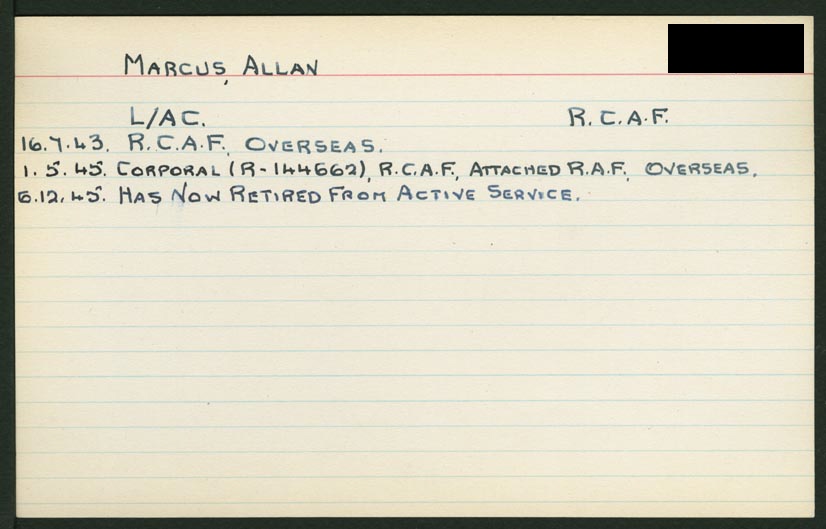 MARCUS, ALLAN
L/AC. R.C.A.F.
16.7.43. R.C.A.F. OVERSEAS.
1.5.45. CORPORAL (R-144662), R.C.A.F., ATTACHED R.A.F. OVERSEAS.
6.12.45. HAS NOW RETIRED FROM ACTIVE SERVICE.